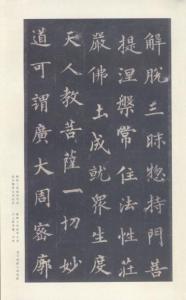 解脫三昧惣持門善
提涅槃常住法性莊
嚴佛土成就眾生度
天人教菩薩一切妙
道可謂廣大周密廓